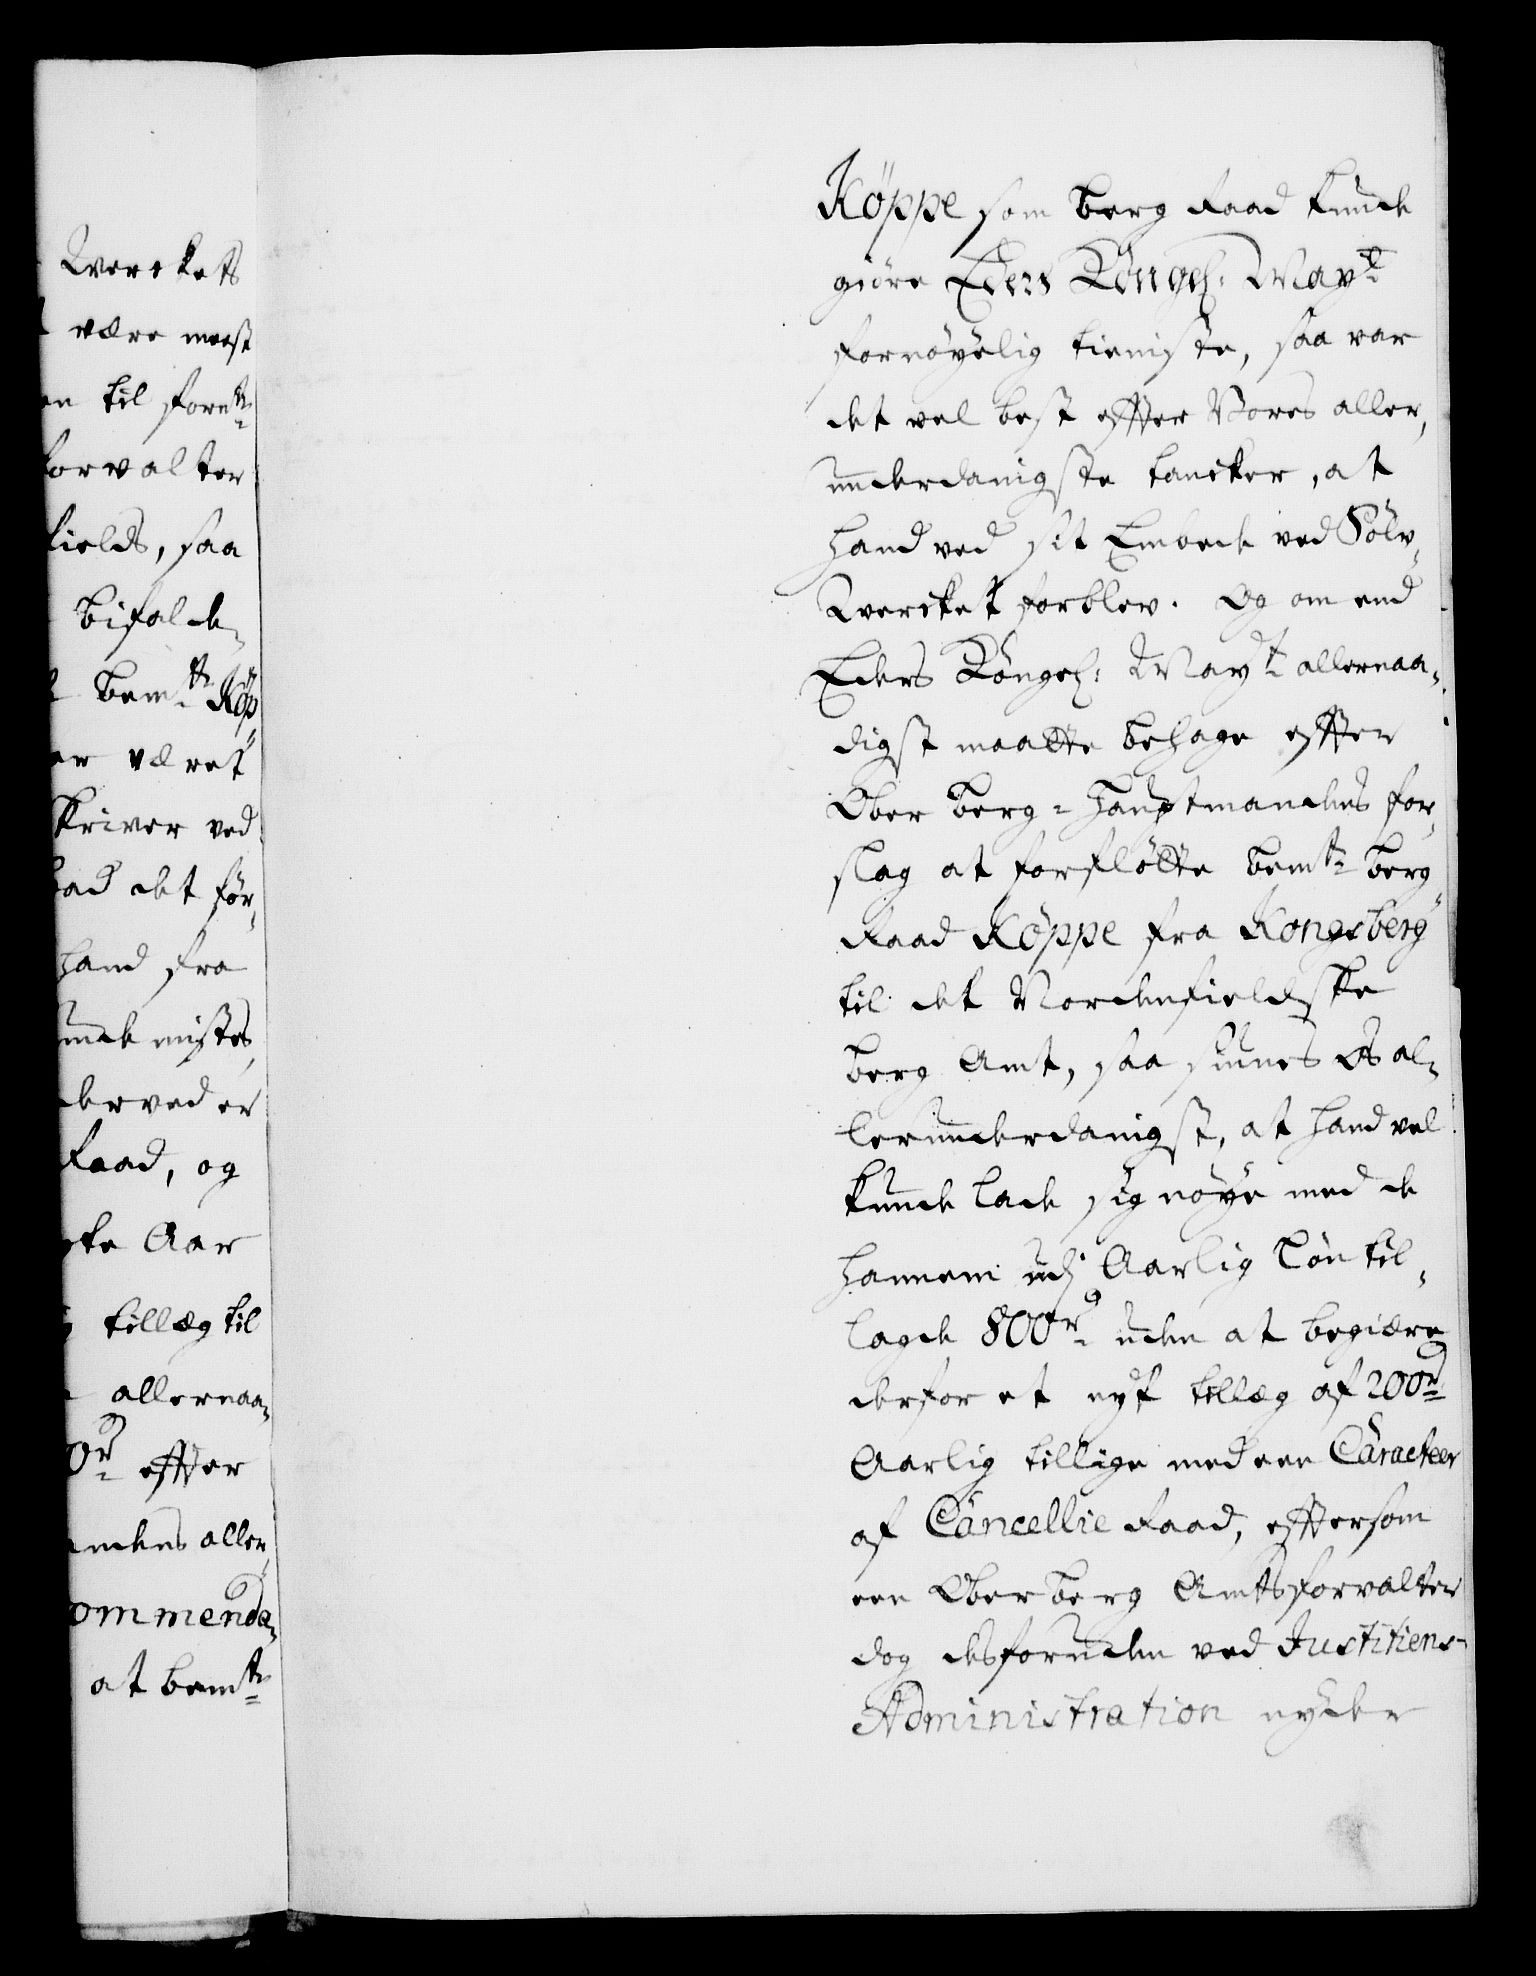 Werckets
være meest
en til forn.te
forvalter
fields, saa
bifalde,
bem.te Köp
er været
skriver ved
det før,
hand fra
unde mistes,
derved er
Raad, og
Aar
tillæg til
allernaa,
0rd. efter
andens aller,
ommenda,
at bem.te
Köppe som berg Raad kunde
giöre Eders Kongel: Mayt.
fornöyelig tieniste, saa var
det vel best efter Vores aller,
underdanigste tancker, at
hand ved sit Embede ved Sölv-
Wercket forblev. Og om end
Eders Kongel: Mayt. allernaa,
digst maatte behage efter
Ober berg-Hauptmandens for,
slag at forflötte bem.te berg
Raad Köppe fra Kongsberg
til det Nordenfieldske
berg Amt, saa siunes Os al,
lerunderdanigst, at hand vel
kunde lade sig nöye med de
hannem udj Aarlig Lön til,
lagde 800rd. uden at begiære
derfor et nyt tillæg af 200rd.
Aarlig tillige med een Caracteer
af Cancellie Raad, eftersom
een Ober berg Amtsforvalter
dog desforuden ved Justitiens-
Administration nyder